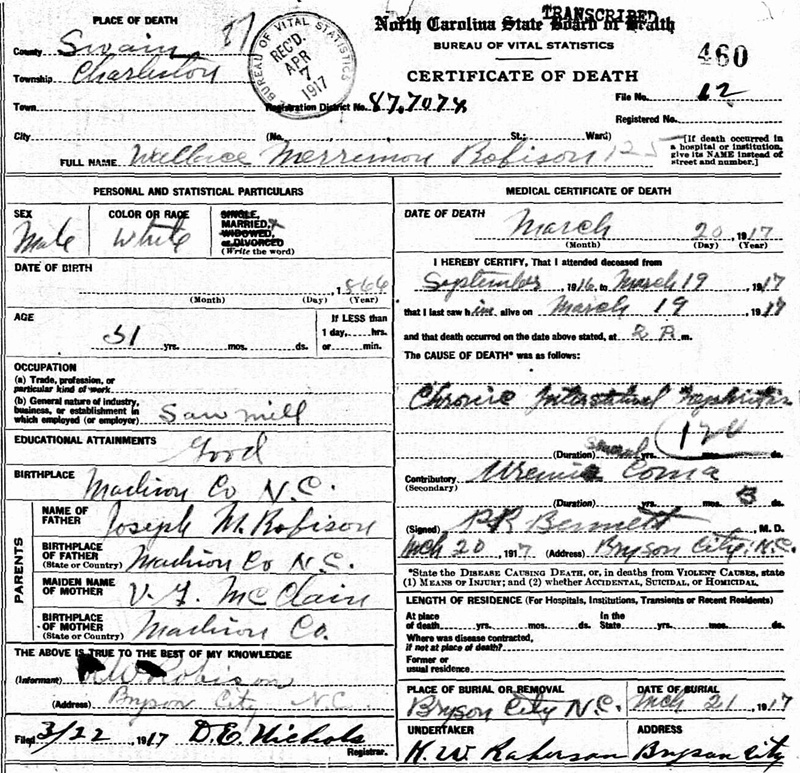 TRANSCRIBED
North Carolina State Board of Health
BUREAU OF VITAL STATISTICS
CERTIFICATE OF DEATH
460
PLACE OF DEATH
County Swain 87
Township Charleston
BUREAU OF VITAL STATISTICS REC'D. APR 7 1917
Registration District No. 87.7074
File No. 12
Town
Registered No.
City (No. St.; Ward)
[If death occurred in a hospital or institution, give its NAME instead of street and number.]
FULL NAME Wallace Merremon Robison 125
PERSONAL AND STATISTICAL PARTICULARS
SEX
Male
COLOR OR RACE
White
SINGLE,
MARRIED, x
WIDOWED,
or DIVORCED
(Write the word)
DATE OF BIRTH
1866
(Month) (Day) (Year)
AGE
51 yrs. mos. ds.
If LESS than
1 day, hrs.
or min.
OCCUPATION
(a) Trade, profession, or
particular kind of work
(b) General nature of industry,
business, or establishment in
which employed (or employer) Saw mill
EDUCATIONAL ATTAINMENTS
Good
BIRTHPLACE
Madison Co N.C.
PARENTS
NAME OF FATHER
Joseph M. Robison
BIRTHPLACE OF FATHER
(State or Country)
Madison Co N.C.
MAIDEN NAME OF MOTHER
McClain
BIRTHPLACE OF MOTHER
(State or Country)
Madison Co.
THE ABOVE IS TRUE TO THE BEST OF MY KNOWLEDGE
(Informant) W Robison
(Address) Bryson City N.C.
Filed 3/22 1917 D.E. Nichols
Registrar.
MEDICAL CERTIFICATE OF DEATH
DATE OF DEATH
March 20 1917
(Month) (Day) (Year)
I HEREBY CERTIFY, That I attended deceased from
September 1916 to March 19 1917
that I last saw him alive on March 19 1917
and that death occurred on the date above stated, at 2 P. m.
The CAUSE OF DEATH* was as follows:
Chronic Interstitial Nephritis
120
(Duration) Several yrs. mos. ds.
Contributory Uremic Coma
(Secondary)
(Duration) yrs. mos. 3 ds.
(Signed) P R Bennett M. D.
Mch 20 1917 (Address) Bryson City, N.C.
*State the DISEASE CAUSING DEATH, or, in deaths from VIOLENT CAUSES, state
(1) MEANS OF INJURY; and (2) whether ACCIDENTAL, SUICIDAL, or HOMICIDAL.
LENGTH OF RESIDENCE (For Hospitals, Institutions, Transients or Recent Residents)
At place
of death yrs. mos. ds.
In the
State yrs. mos. ds.
Where was disease contracted,
if not at place of death?
Former or
usual residence
PLACE OF BURIAL OR REMOVAL
Bryson City N.C.
DATE OF BURIAL
Mch 21 1917
UNDERTAKER
K. W.
ADDRESS
Bryson City